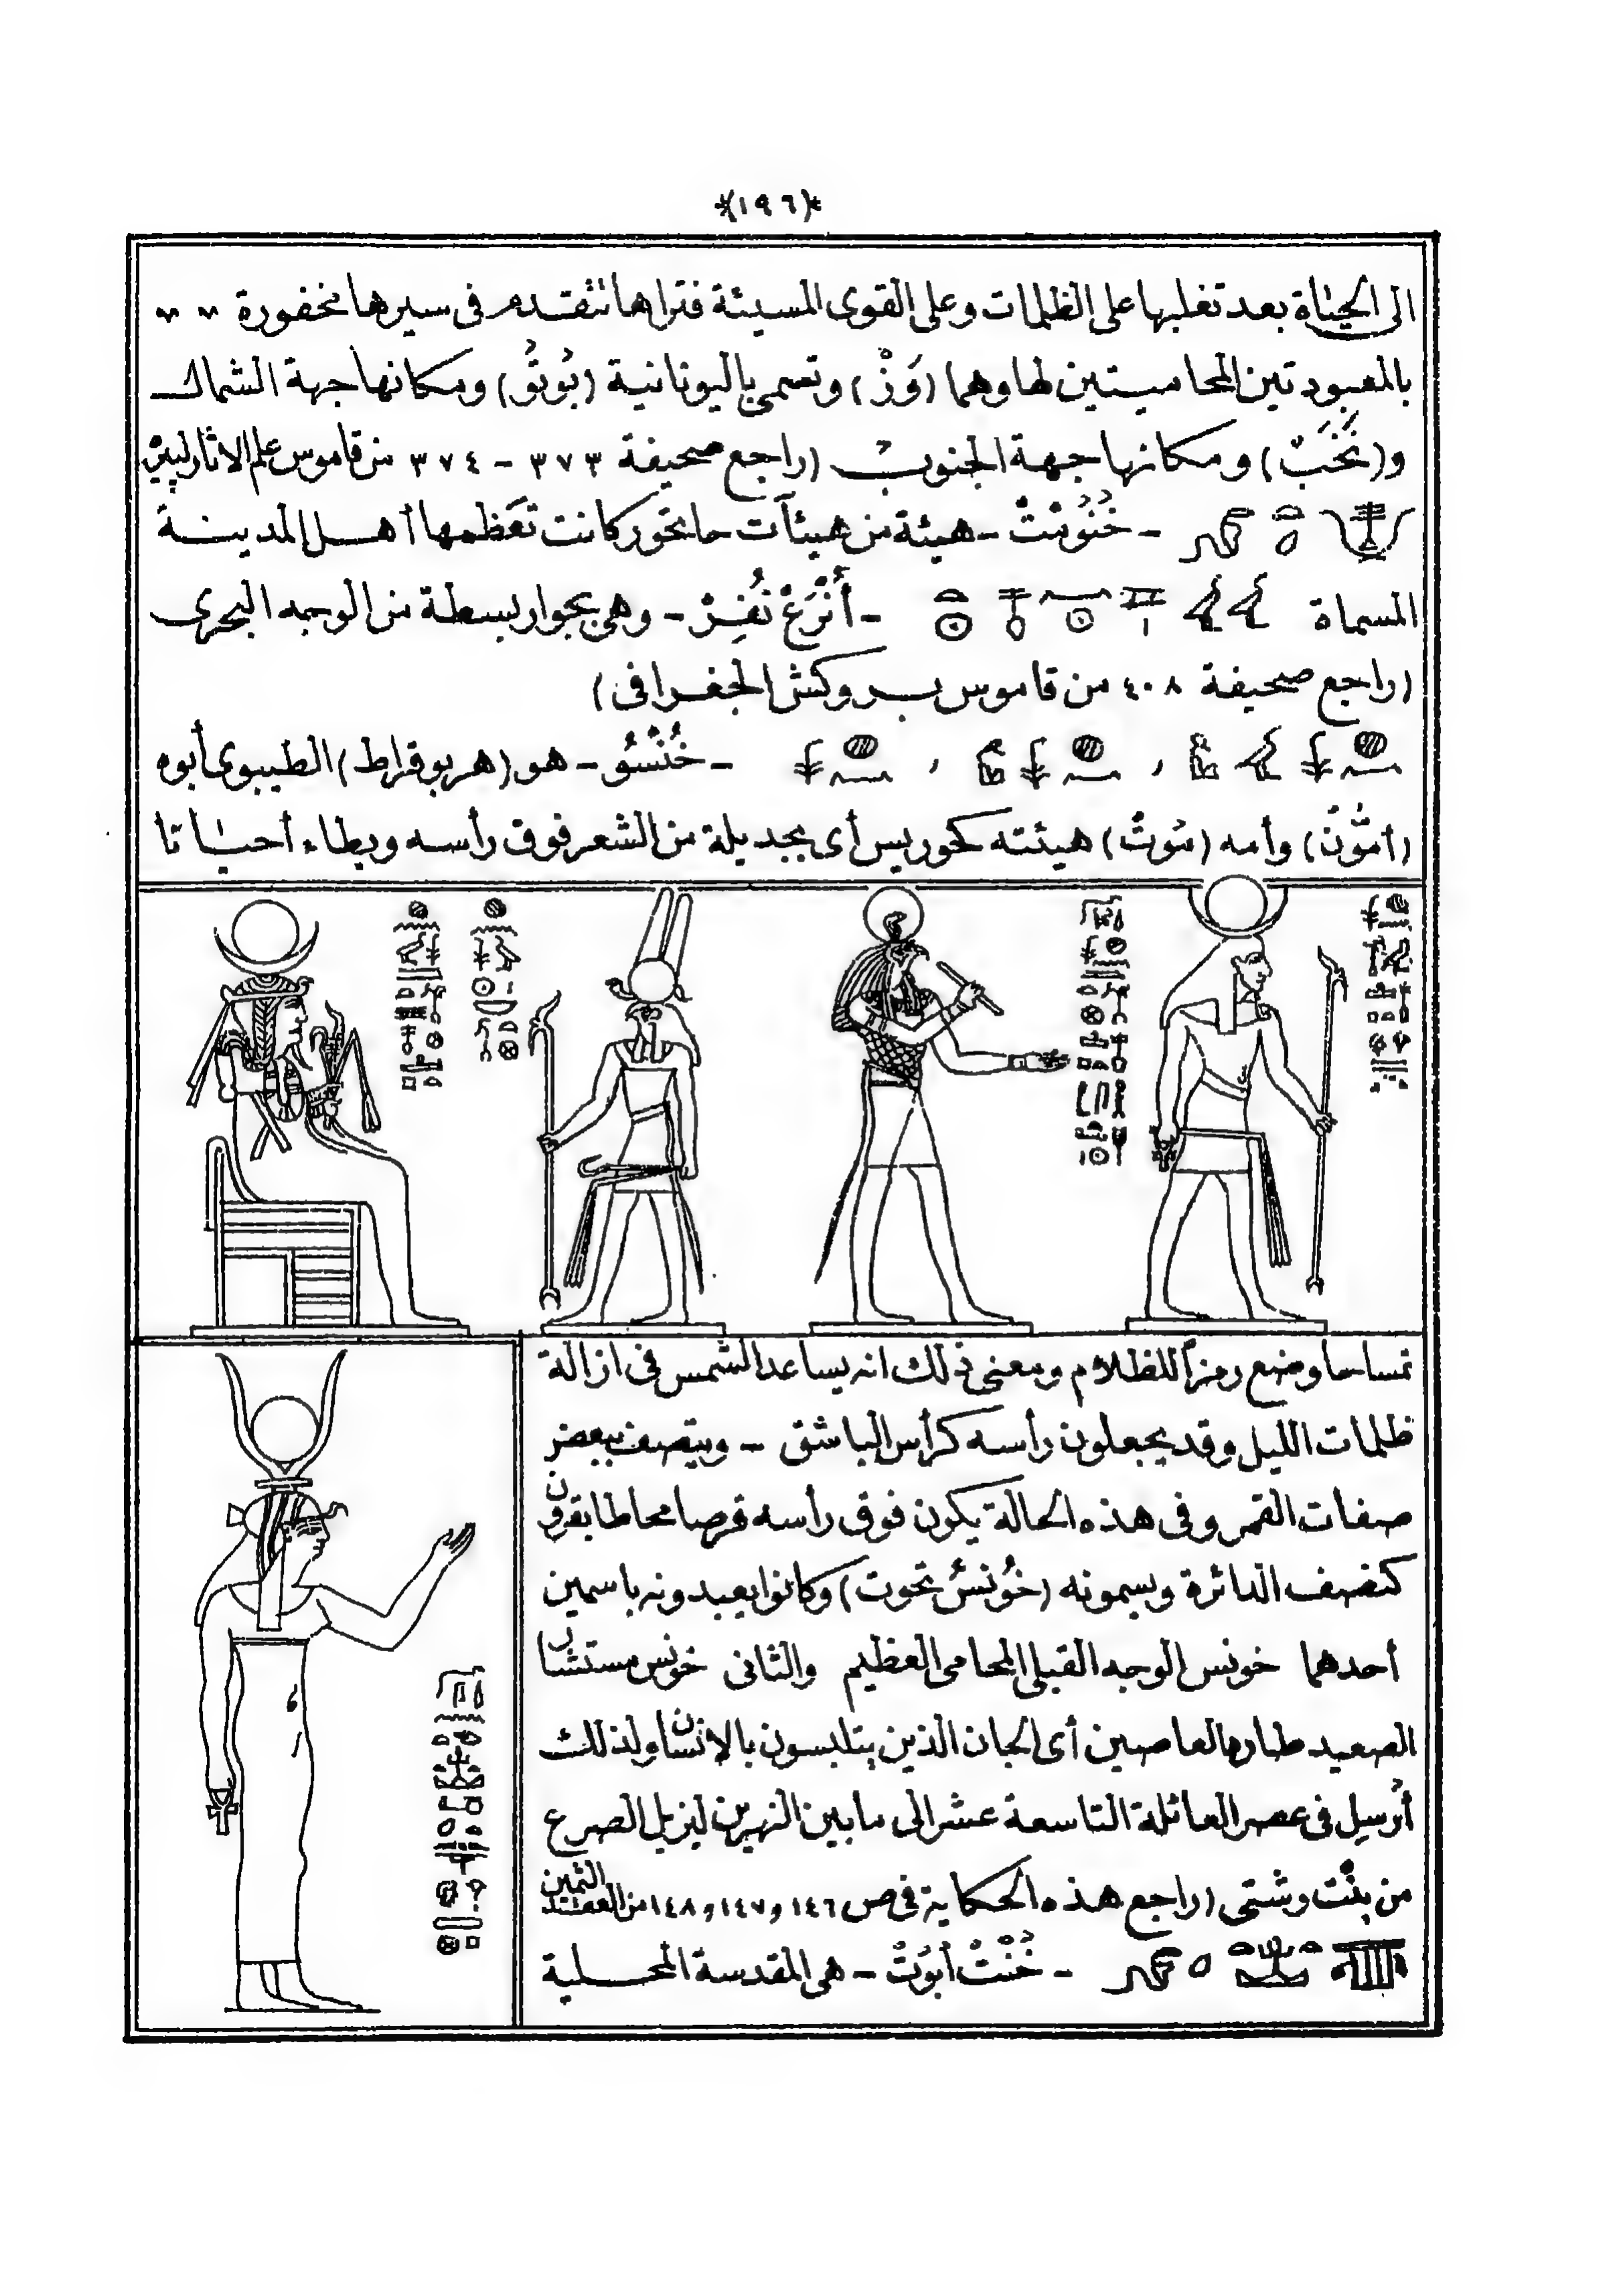 *(١٩٦)*
الى الحياة بعد تغلبها على الظلمات وعلى القوى المسيئة فتراها تتقدم فى سيرها مخفورة
بالمعبودتين المحاميتين لها وهما (وَزْ) وتسمى باليونانية (بُوتُو) ومكانها جهة الشمال
و(نَخَبْ) ومكانها جهة الجنوب (راجع صحيفة ٣٧٣ - ٣٧٤ من قاموس علم الاثار لبيرّ
- خُنُومِتْ - هيئة من هيئات حاتحور كانت تعظمها أهل المدينة
المسماة - أُنْرَعْ نُفِرْ - وهى بجوار بسطة من الوجه البحرى
(راجع صحيفة ٤٠٨ من قاموس بروكش الجغرافى)
، ، - خُنْسُو - هو (هربوقراط) الطيبوى أبوه
(أمُّونْ) وأمه (مُوتْ) هيئته كحوريس أى بجديلة من الشعر فوق رأسه ويطاء أحيانا
تمساحا وضع رمزاً للظلام ومعنى ذلك انه يساعد الشمس فى ازالة
ظلمات الليل وقد يجعلون رأسه كرأس الباشق - ويتصف ببعض
صفات القمر وفى هذه الحالة يكون فوق رأسه قرصا محاطا بقرون
كنصف الدائرة ويسمونه (خُونْسُ تحوت) وكانوا يعبدونه باسمين
أحدهما خونس الوجه القبلى المحامى العظيم والثانى خونس مستشار
الصعيد طارد العاصين أى الجان الذين يتلبسون بالانسان ولذلك
أُرسيل فى عصر العائلة التاسعة عشر الى ما بين النهرين ليزيل الصرع
من بنْت رشتى (راجع هذه الحكاية فى ص ١٤٦ و ١٤٧ و ١٤٨ من العقد الثمين
- خُنْتْ أبُوتْ - هى المقدسة المحلية